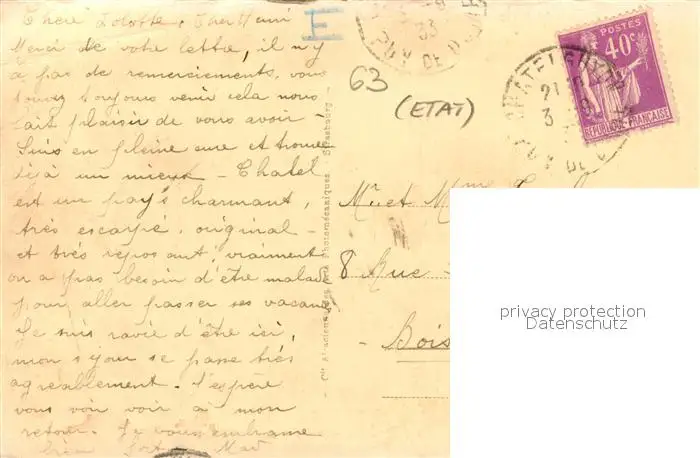 Chère Lolotte, Cher Henri
Merci de votre lettre, il n'y
a pas de remerciements, vous
pouvez toujours venir cela nous
fait plaisir de vous avoir -
Suis en pleine cure et trouve
déjà un mieux - Chatel
est un pays charmant,
très escarpé, original -
et très reposant, vraiment
on a pas besoin d'être malade
pour aller passer ses vacances
Je suis ravie d'être ici,
mon séjour se passe très
agréablement. J'espère
vous voir à mon
retour. Je vous embrasse
bien fort. Mad
E
63
(ETAT)
33
PUY DE DOME
CHATELGUYON
21
POSTES
40c
REPUBLIQUE FRANÇAISE
Cie Alsacienne des Arts Photomécaniques - Strasbourg
Mr. et Mme
8 Rue
- Bois
privacy protection
Datenschutz